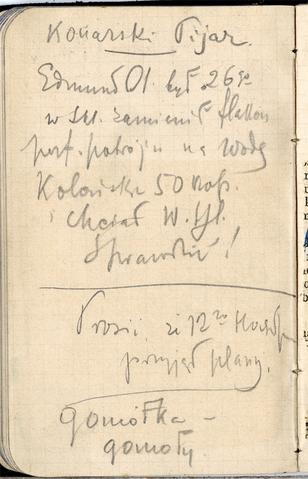 Konarski Pijar.
Edmund Ol. był 26go
w skł. zamienił flakon
perf. potrójn na wodę
Kolońską 50 kop.
i chciał W. skł.
Sprawdzić!
Prosił, że 12go
przyjąć plany.
gomółka –
gomoły